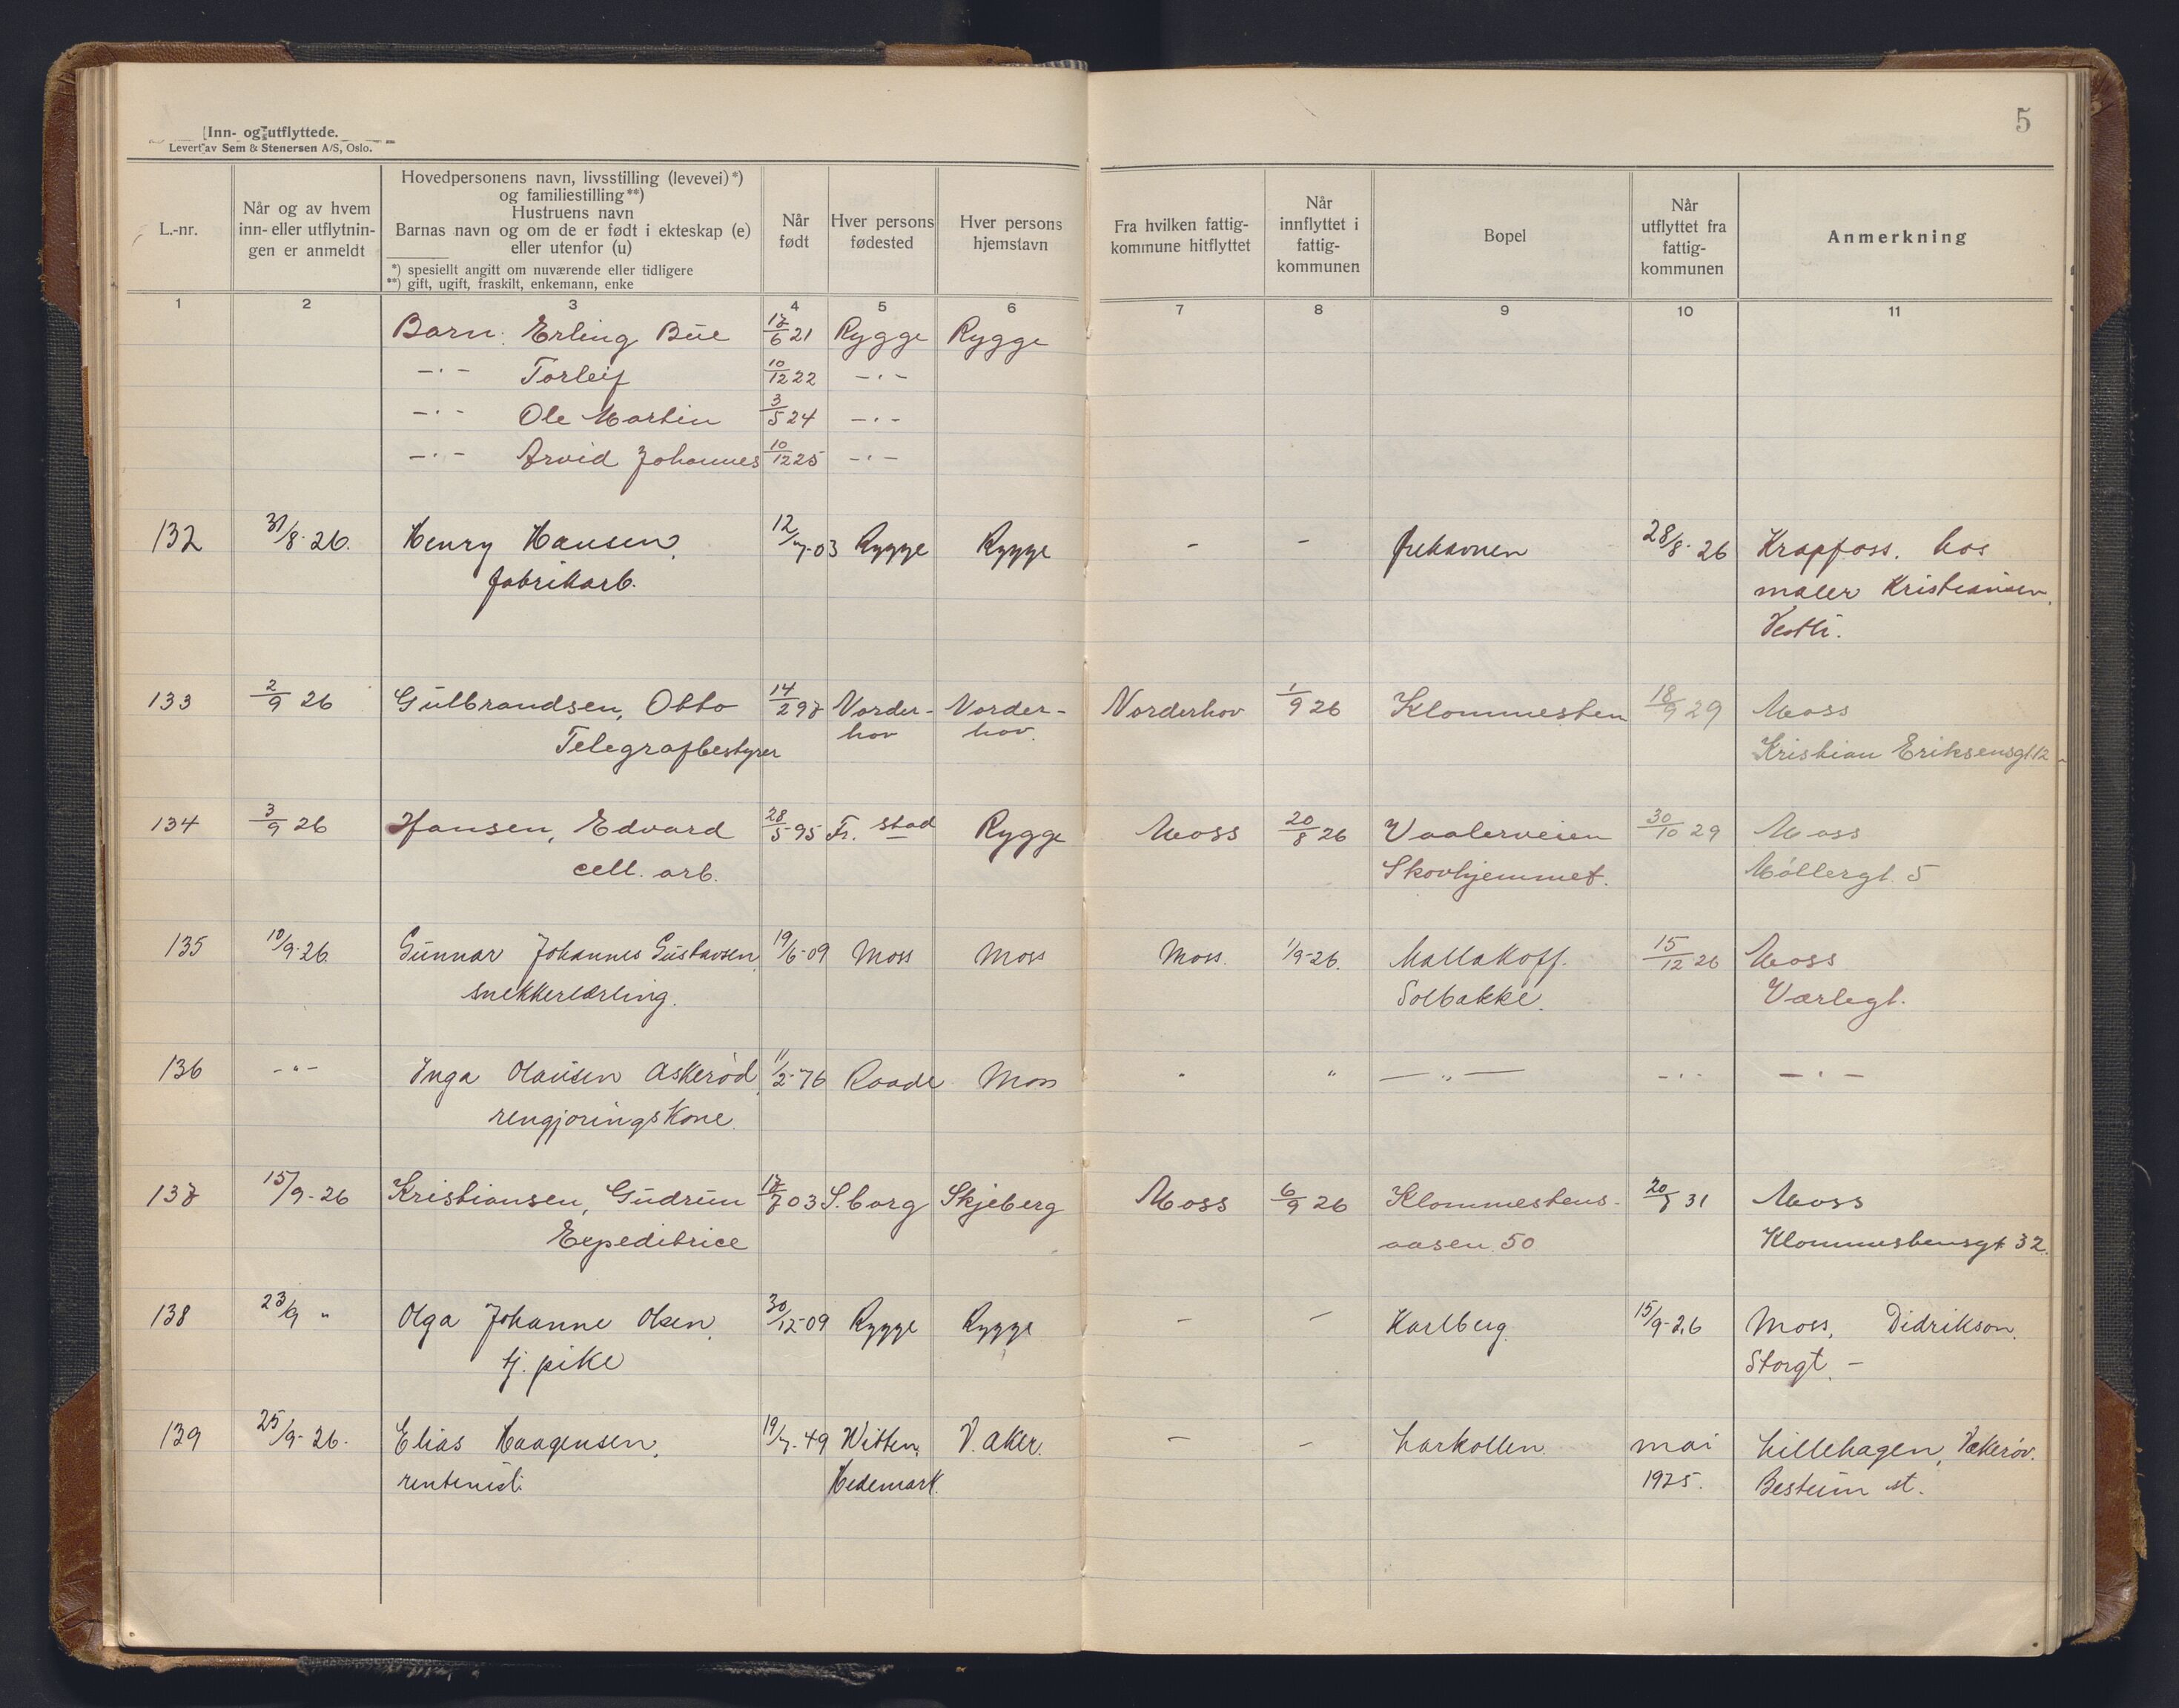 Inn- og utflyttede.
Levert av Sem & Stenersen A/S, Oslo.
5
L.-nr.
Når og av hvem inn- eller utflytnin-gen er anmeldt
Hovedpersonens navn, livsstilling (levevei)*) og familiestilling**)
Hustruens navn
Barnas navn og om de er født i ekteskap (e) eller utenfor (u)
*) spesiellt angitt om nuværende eller tidligere
**) gift, ugift, fraskilt, enkemann, enke
Når født
Hver persons fødested
Hver persons hjemstavn
Fra hvilken fattig-kommune hitflyttet
Når innflyttet i fattig-kommunen
Bopel
Når utflyttet fra fattig-kommunen
Anmerkning
1 2 3 4 5 6 7 8 9 10 11
Barn: Erling Büe 17/6 21 Rygge Rygge
-"- Torleif 10/12 22 -"-
-"- Ole Martin 3/5 24 -"-
-"- Arvid Johannes 10/12 25 -"-
132 31/8-26. Henry Hansen, 12/7-03 Rygge Rygge - - 28/8-26 Krapfoss. hos
fabrikarb. maler Kristiansen,
Vestli.
133 2/9 26 Gülbrandsen, Otto 14/2 97 Norder- Norder- Norderhov 1/9 26 Klommesten 18/9 29 Moss
Telegrafbestyrer hov hov. Kristian Eriksensgt 12
134 3/9 26 Hansen, Edvard 28/5 95 Fr. stad Rygge Moss 20/8 26 Vaalerveien 30/10 29 Moss
cell. arb. Skovhjemmet. Möllergt. 5
135 10/9-26. Günnar Johannes Güstavsen, 19/6-09 Moss Moss Moss. 1/9-26. Mallakoff. 15/12 26 Moss
snekkerlærling. Solbakke. Værlegt.
136 -"- Inga Olaüsen Askerød, 11/2-76 Raade Moss " " -"- -"- -"-
rengjøringskone.
137 15/9-26 Kristiansen, Güdrün 17/7 03 S.borg Skjeberg Moss 6/9 26 Klommestens- 20/8 31 Moss
Expeditrice aasen 50 Klommestensgt 32.
138 23/9 " Olga Johanne Olsen, 30/12-09 Rygge Rygge - - Karlberg. 15/9-26 Moss, Didrikson.
tj. pike Storgt. -
139 25/9-26. Elias Haagensen, 19/7-49 Witten, V. Aker. - - Larkollen mai Lillehagen, Vækerøv.
rentenist Hedemark. 1925. Bestüm st.